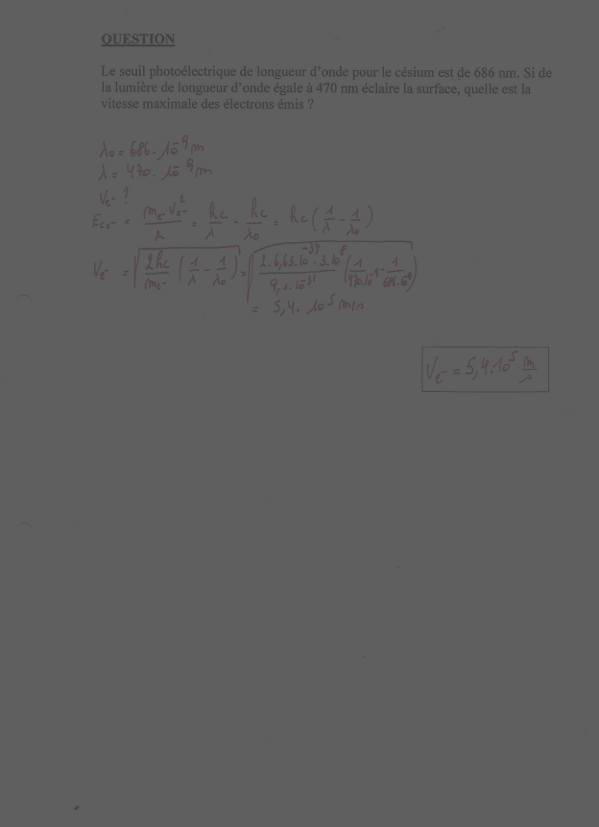 QUESTION
Le seuil photoélectrique de longueur d'onde pour le césium est de 686 nm. Si de
la lumière de longueur d'onde égale à 470 nm éclaire la surface, quelle est la
vitesse maximale des électrons émis ?
λ₀ = 686 . 10⁻⁹ m
λ = 470 . 10⁻⁹ m
Ve⁻ ?
Ece⁻ = me⁻ Ve⁻² / 2 = hc / λ - hc / λ₀ = hc ( 1/λ - 1/λ₀ )
Ve⁻ = √( 2hc / me⁻ ( 1/λ - 1/λ₀ ) ) = √( 2 . 6,63 . 10⁻³⁴ . 3 . 10⁸ / 9,1 . 10⁻³¹ ( 1 / 470.10⁻⁹ - 1 / 686.10⁻⁹ ) )
= 5,4 . 10⁵ m/s
Ve⁻ = 5,4.10⁵ m/s